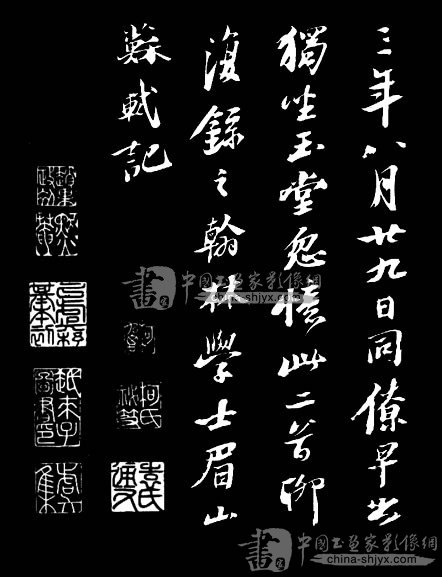 三年八月廿九日同僚早出
獨坐玉堂忽憶此二首聊
復錄之翰林學士眉山
蘇軾記
書 中国书画家影像網
china-shjyx.com
書 中国书画家影像網
china-shjyx.com